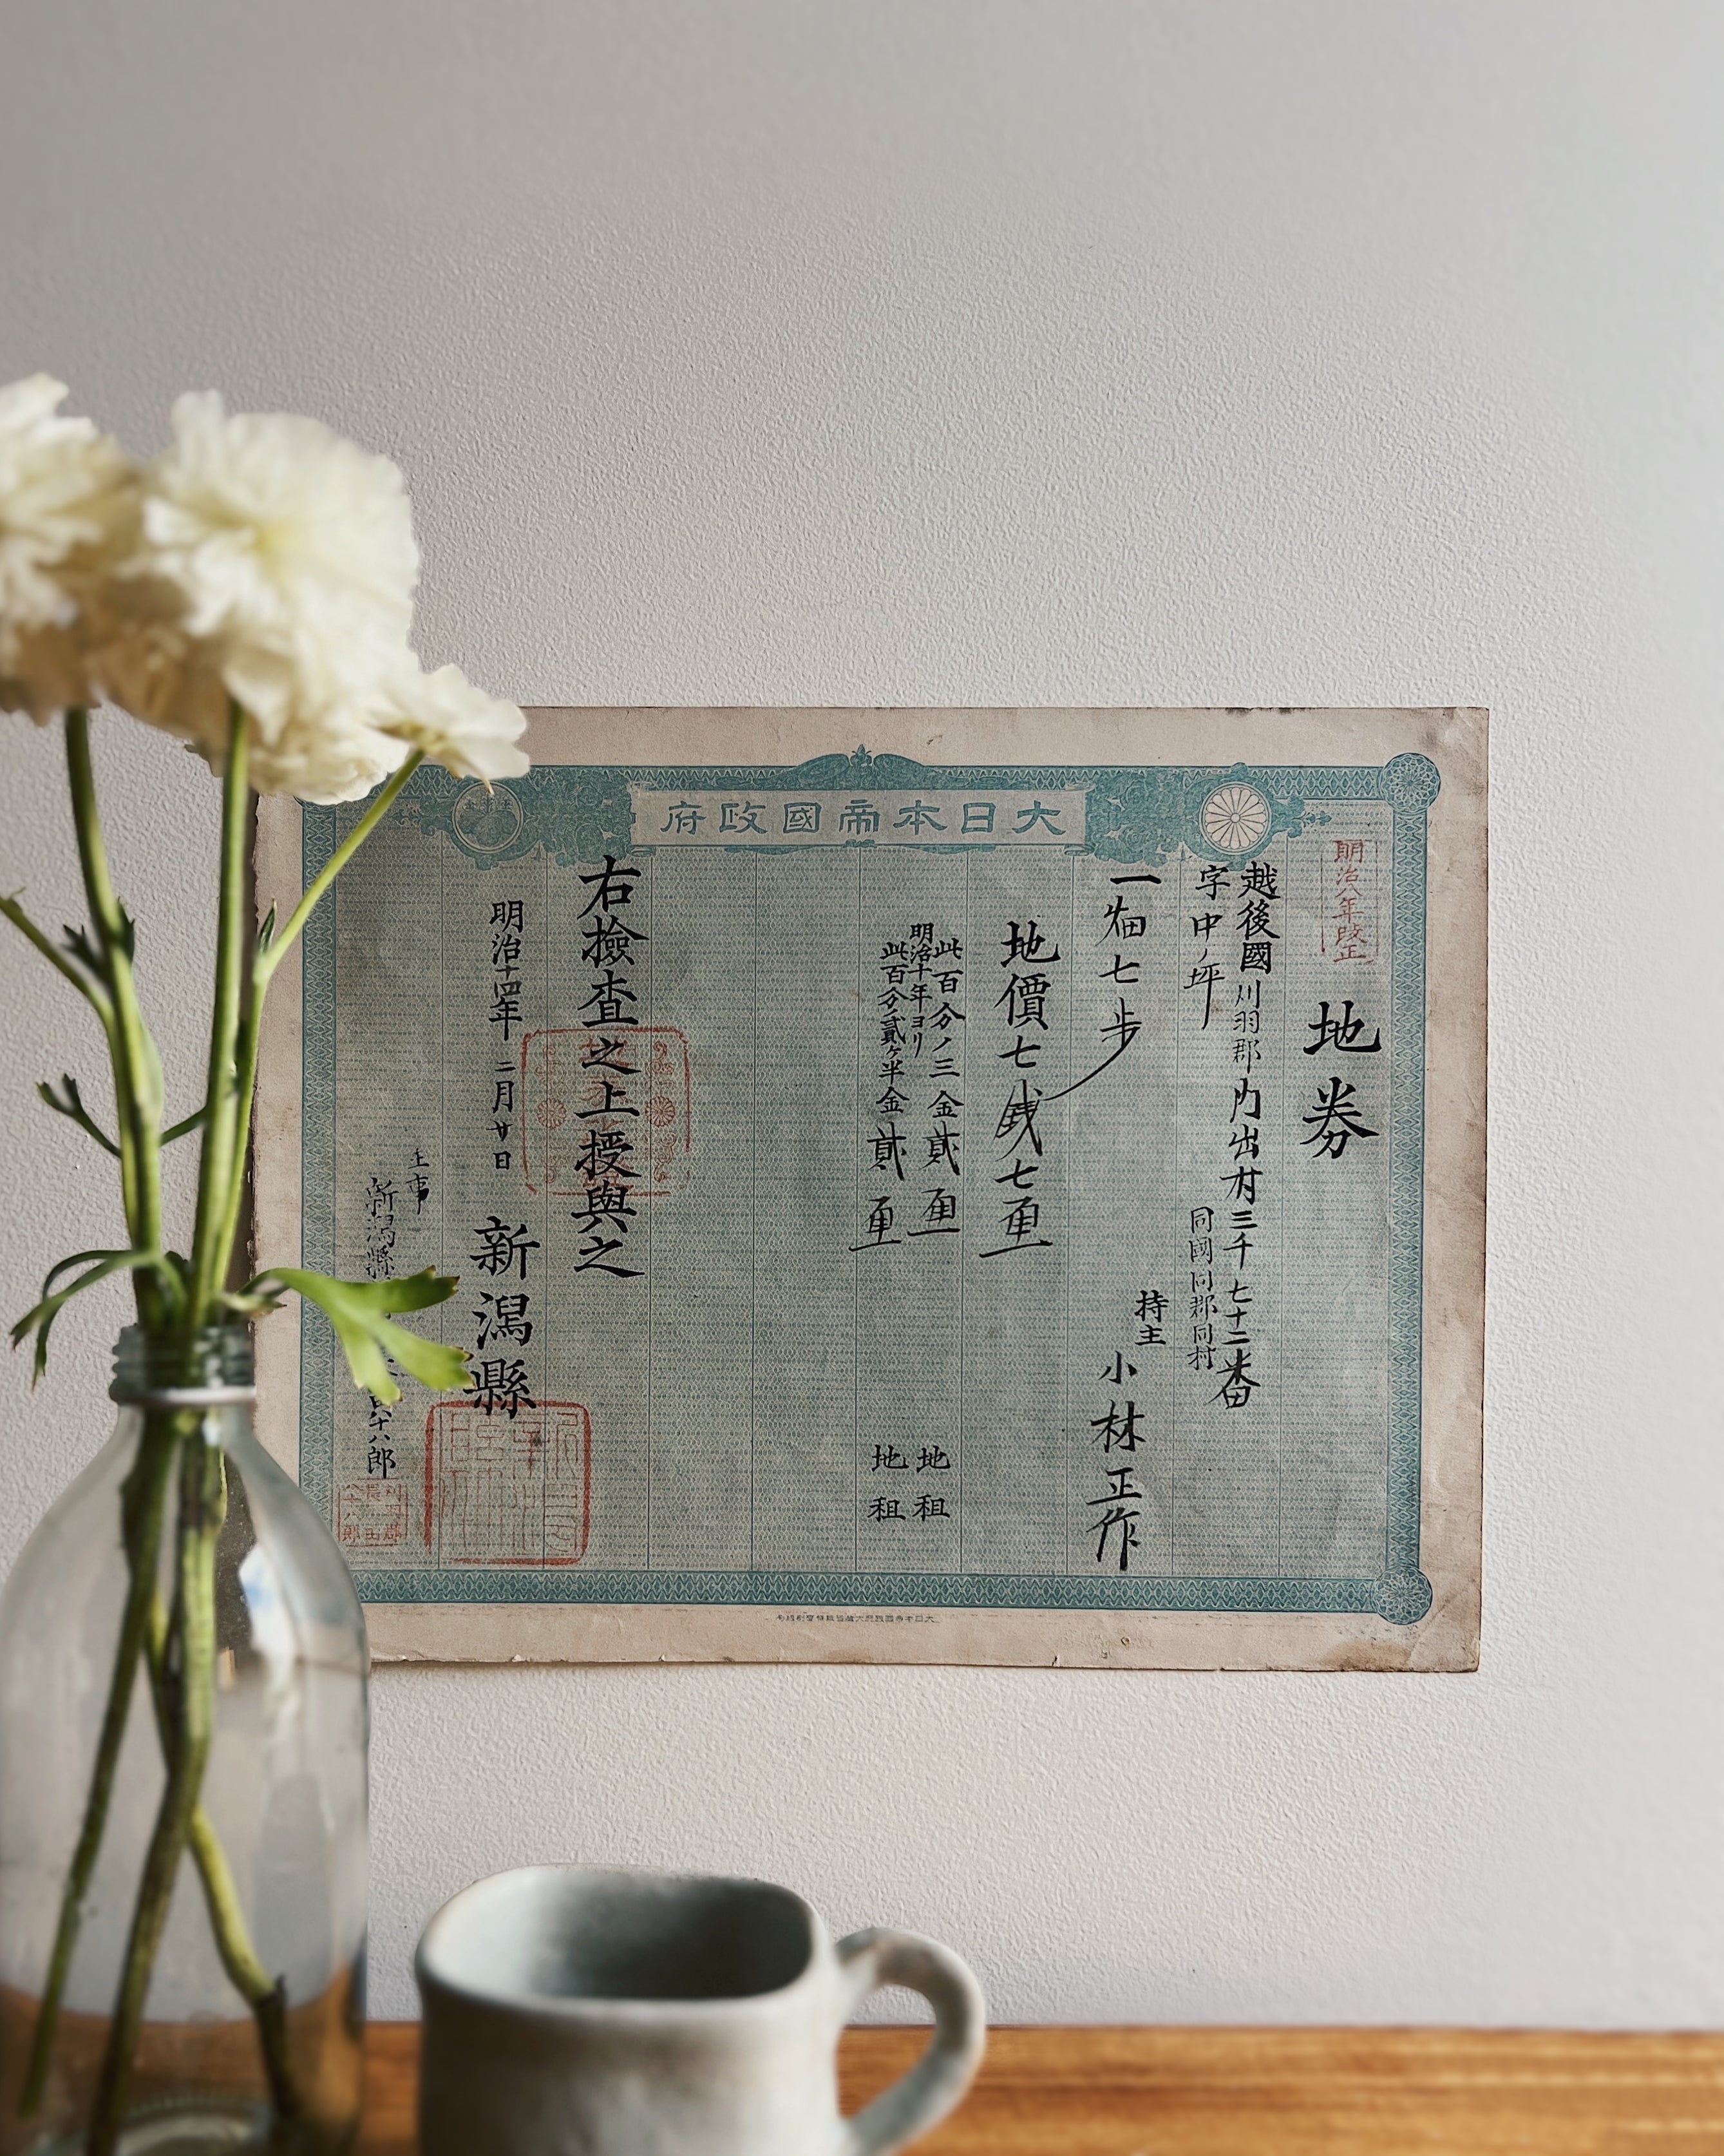 大日本帝國政府
明治八年改正
地券
越後國刈羽郡內出村三千七十二番
字中ノ坪
同國同郡同村
一畑七步
持主 小林正作
地價七銭七厘
此百分ノ三金貳厘 地租
明治十年ヨリ
此百分ノ貳ヶ半金貳厘 地租
右撿查之上授與之
明治十四年二月廿日
新潟縣
主事
新潟縣
八郎